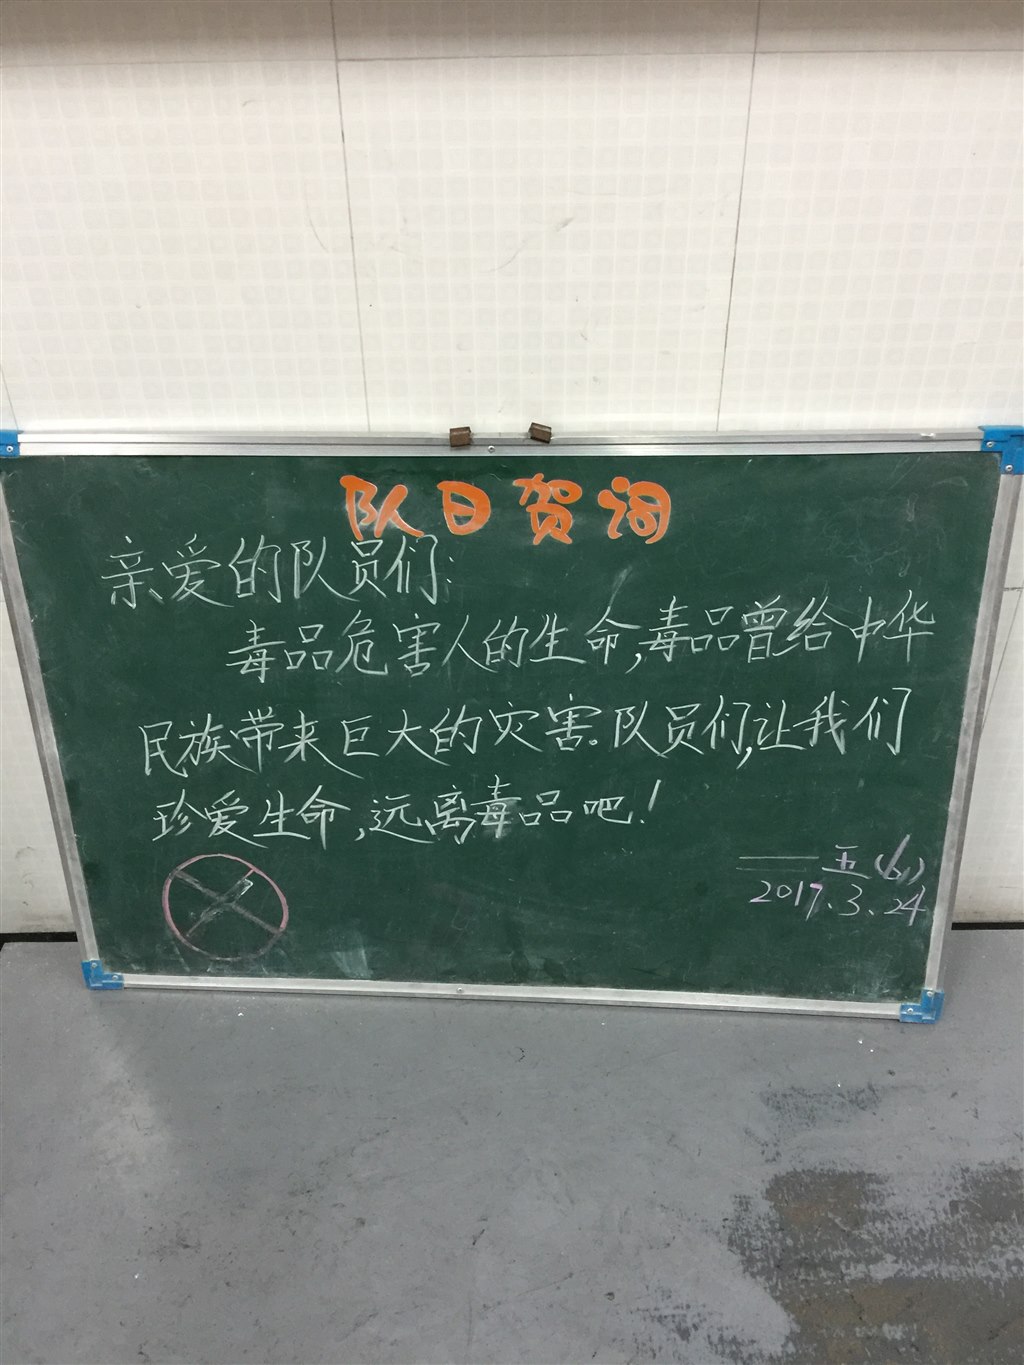 队日贺词
亲爱的队员们:
毒品危害人的生命,毒品曾给中华
民族带来巨大的灾害.队员们,让我们
珍爱生命,远离毒品吧!
——五(6)
2017.3.24